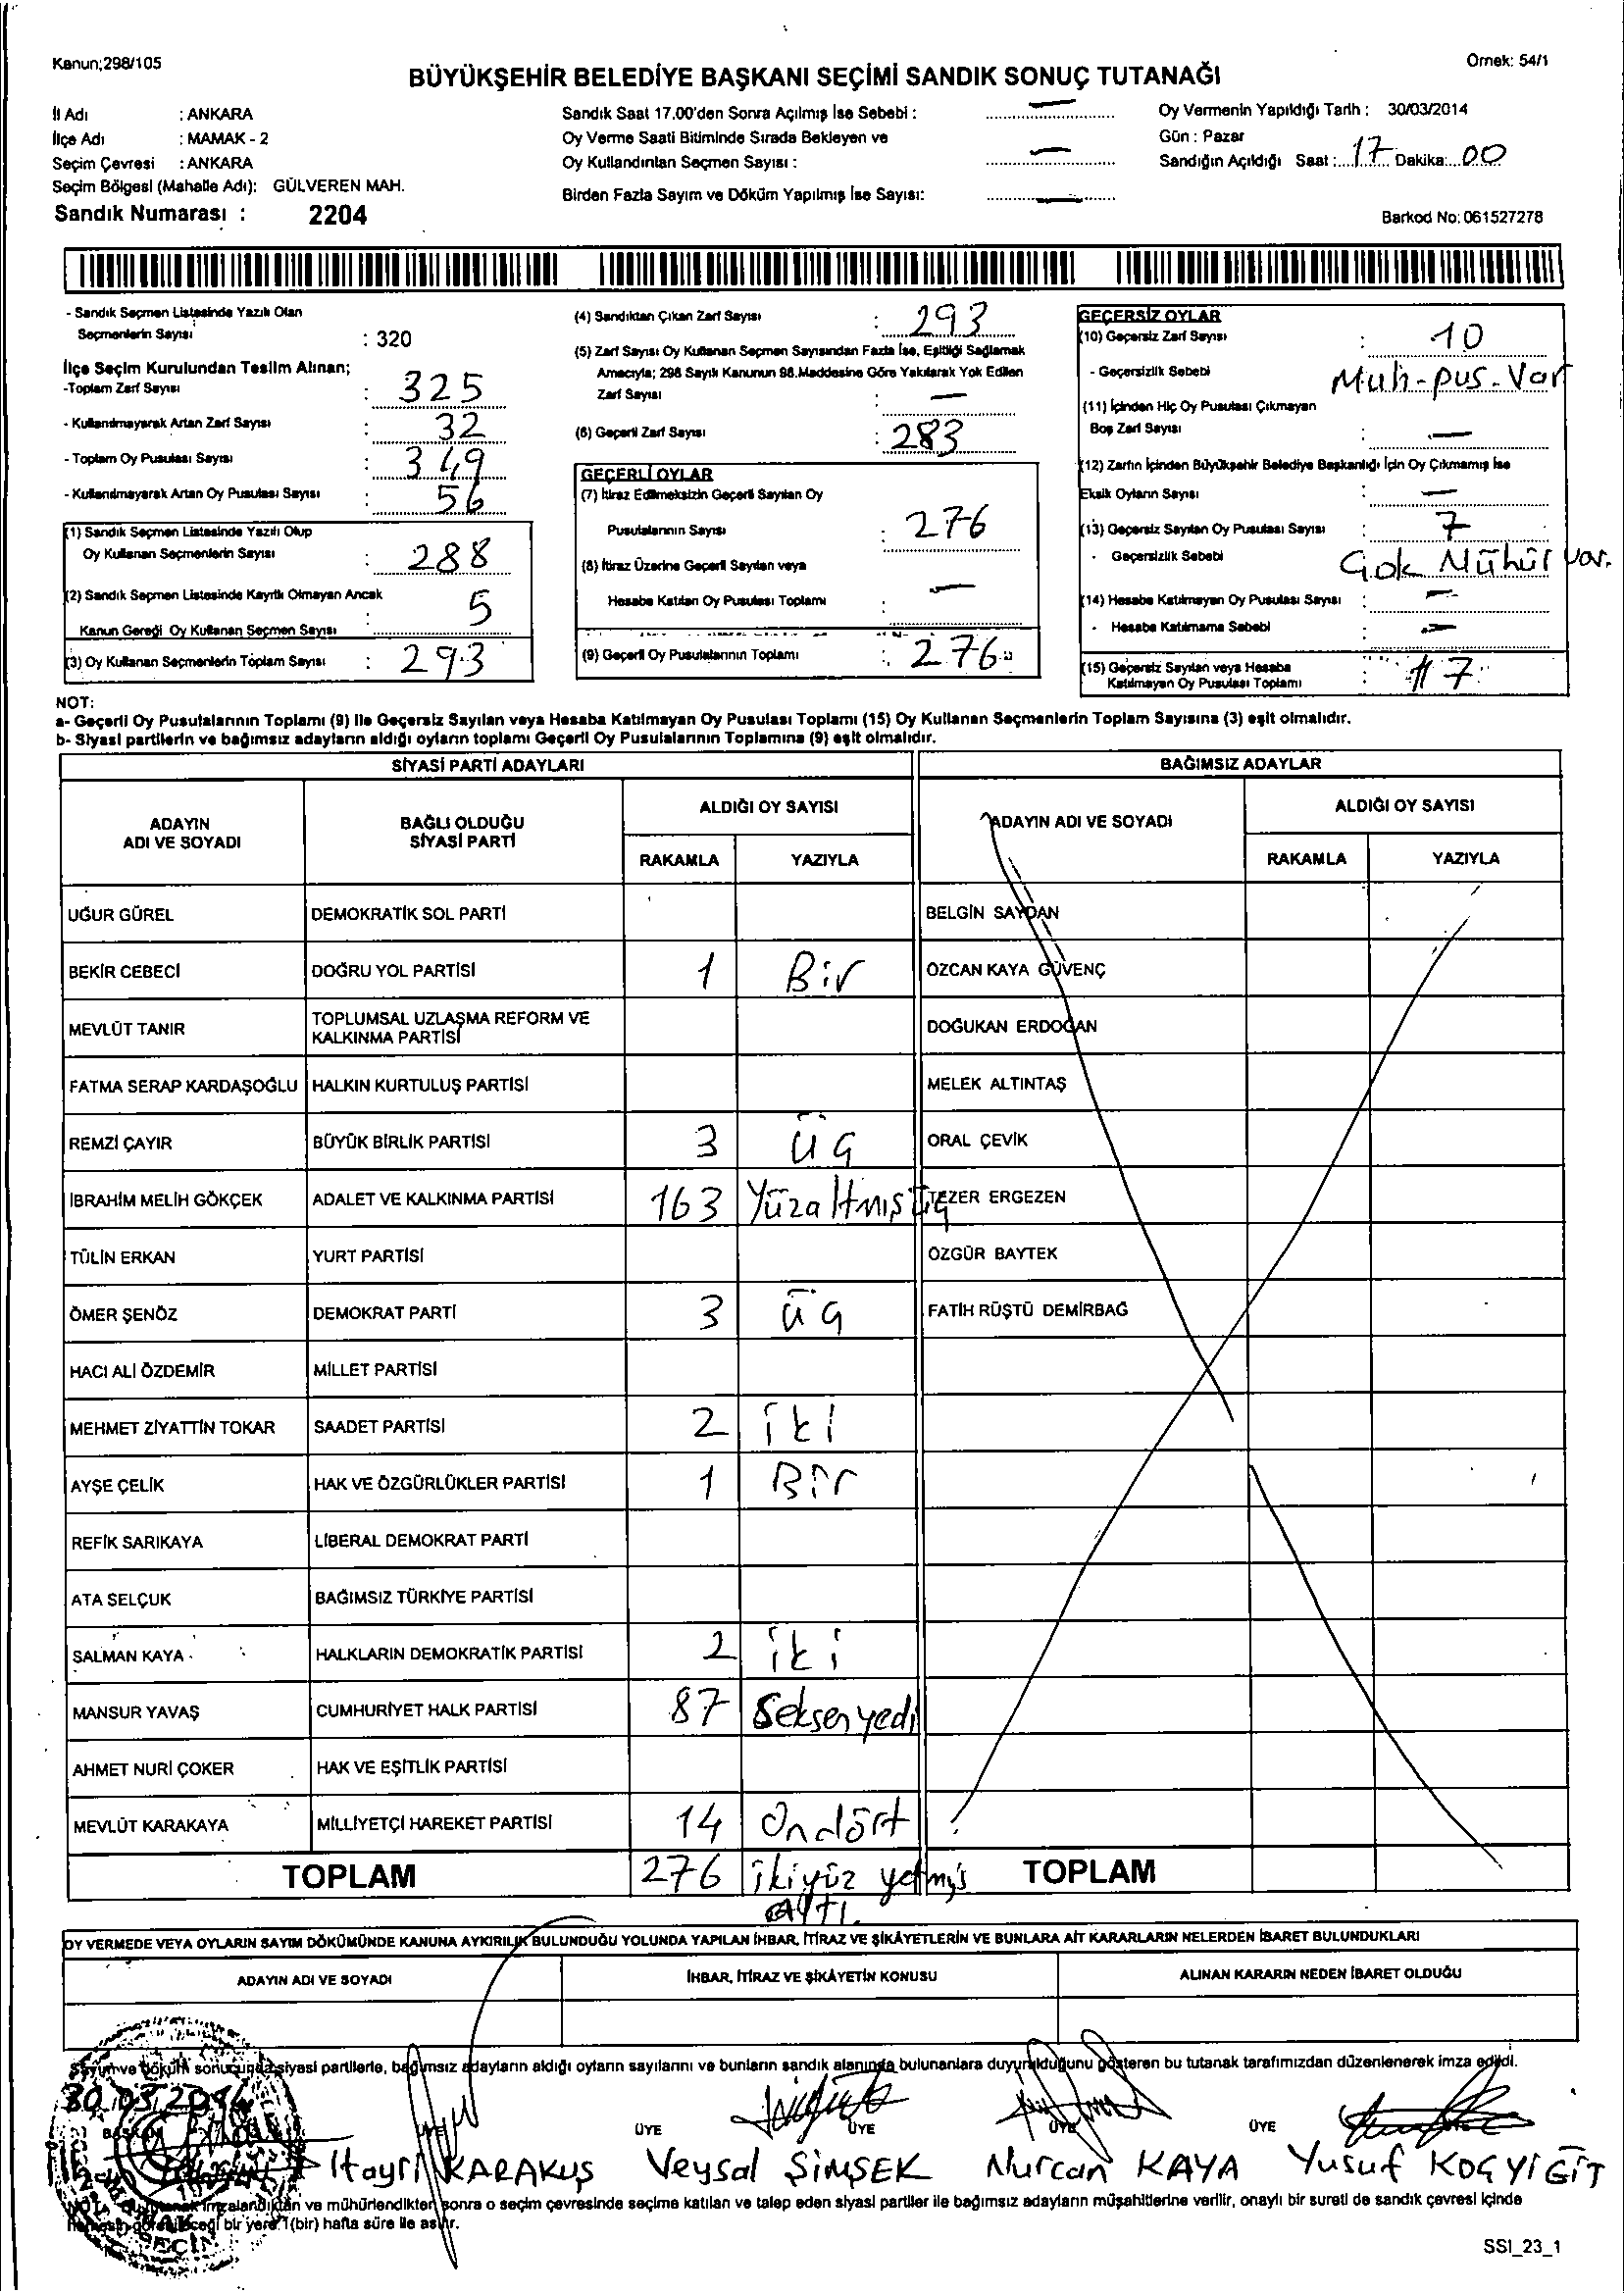 Kanun;298/105
Örnek: 54/1
BÜYÜKŞEHİR BELEDİYE BAŞKANI SEÇİMİ SANDIK SONUÇ TUTANAĞI
İl Adı : ANKARA
İlçe Adı : MAMAK - 2
Seçim Çevresi : ANKARA
Seçim Bölgesi (Mahalle Adı): GÜLVEREN MAH.
Sandık Numarası : 2204
Sandık Saat 17.00'den Sonra Açılmış İse Sebebi : —
Oy Verme Saati Bitiminde Sırada Bekleyen ve
Oy Kullandırılan Seçmen Sayısı : —
Birden Fazla Sayım ve Döküm Yapılmış İse Sayısı: —
Oy Vermenin Yapıldığı Tarih : 30/03/2014
Gün : Pazar
Sandığın Açıldığı Saat : 17 Dakika: 00
Barkod No: 061527278
- Sandık Seçmen Listesinde Yazılı Olan
Seçmenlerin Sayısı : 320
İlçe Seçim Kurulundan Teslim Alınan;
-Toplam Zarf Sayısı : 325
- Kullanılmayarak Artan Zarf Sayısı : 32
- Toplam Oy Pusulası Sayısı : 349
- Kullanılmayarak Artan Oy Pusulası Sayısı : 56
(1) Sandık Seçmen Listesinde Yazılı Olup
Oy Kullanan Seçmenlerin Sayısı : 288
(2) Sandık Seçmen Listesinde Kayıtlı Olmayan Ancak
Kanun Gereği Oy Kullanan Seçmen Sayısı : 5
(3) Oy Kullanan Seçmenlerin Toplam Sayısı : 293
(4) Sandıktan Çıkan Zarf Sayısı : 293
(5) Zarf Sayısı Oy Kullanan Seçmen Sayısından Fazla İse, Eşitliği Sağlamak
Amacıyla; 298 Sayılı Kanunun 98.Maddesine Göre Yakılarak Yok Edilen
Zarf Sayısı : —
(6) Geçerli Zarf Sayısı : 283
GEÇERLİ OYLAR
(7) İtiraz Edilmeksizin Geçerli Sayılan Oy
Pusulalarının Sayısı : 276
(8) İtiraz Üzerine Geçerli Sayılan veya
Hesaba Katılan Oy Pusulası Toplamı : —
(9) Geçerli Oy Pusulalarının Toplamı : 276
GEÇERSİZ OYLAR
(10) Geçersiz Zarf Sayısı : 10
- Geçersizlik Sebebi Muh-pus-Var
(11) İçinden Hiç Oy Pusulası Çıkmayan
Boş Zarf Sayısı : —
(12) Zarfın İçinden Büyükşehir Belediye Başkanlığı İçin Oy Çıkmamış İse
Eksik Oyların Sayısı : —
(13) Geçersiz Sayılan Oy Pusulası Sayısı : 7
- Geçersizlik Sebebi Çok Mühür var.
(14) Hesaba Katılmayan Oy Pusulası Sayısı : —
- Hesaba Katılmama Sebebi : —
(15) Geçersiz Sayılan veya Hesaba
Katılmayan Oy Pusulası Toplamı : 7
NOT:
a- Geçerli Oy Pusulalarının Toplamı (9) ile Geçersiz Sayılan veya Hesaba Katılmayan Oy Pusulası Toplamı (15) Oy Kullanan Seçmenlerin Toplam Sayısına (3) eşit olmalıdır.
b- Siyasi partilerin ve bağımsız adayların aldığı oyların toplamı Geçerli Oy Pusulalarının Toplamına (9) eşit olmalıdır.
SİYASİ PARTİ ADAYLARI
ADAYIN ADI VE SOYADI BAĞLI OLDUĞU SİYASİ PARTİ ALDIĞI OY SAYISI RAKAMLA YAZIYLA
UĞUR GÜREL DEMOKRATİK SOL PARTİ
BEKİR CEBECİ DOĞRU YOL PARTİSİ 1 Bir
MEVLÜT TANIR TOPLUMSAL UZLAŞMA REFORM VE KALKINMA PARTİSİ
FATMA SERAP KARDAŞOĞLU HALKIN KURTULUŞ PARTİSİ
REMZİ ÇAYIR BÜYÜK BİRLİK PARTİSİ 3 üç
İBRAHİM MELİH GÖKÇEK ADALET VE KALKINMA PARTİSİ 163 Yüzaltmışüç
TÜLİN ERKAN YURT PARTİSİ
ÖMER ŞENÖZ DEMOKRAT PARTİ 3 üç
HACI ALİ ÖZDEMİR MİLLET PARTİSİ
MEHMET ZİYATTİN TOKAR SAADET PARTİSİ 2 iki
AYŞE ÇELİK HAK VE ÖZGÜRLÜKLER PARTİSİ 1 Bir
REFİK SARIKAYA LİBERAL DEMOKRAT PARTİ
ATA SELÇUK BAĞIMSIZ TÜRKİYE PARTİSİ
SALMAN KAYA HALKLARIN DEMOKRATİK PARTİSİ 2 iki
MANSUR YAVAŞ CUMHURİYET HALK PARTİSİ 87 Seksenyedi
AHMET NURİ ÇOKER HAK VE EŞİTLİK PARTİSİ
MEVLÜT KARAKAYA MİLLİYETÇİ HAREKET PARTİSİ 14 Ondört
TOPLAM 276 ikiyüz yetmiş altı.
BAĞIMSIZ ADAYLAR
ADAYIN ADI VE SOYADI ALDIĞI OY SAYISI RAKAMLA YAZIYLA
BELGİN SAYDAN
ÖZCAN KAYA GÜVENÇ
DOĞUKAN ERDOĞAN
MELEK ALTINTAŞ
ORAL ÇEVİK
TEZER ERGEZEN
ÖZGÜR BAYTEK
FATİH RÜŞTÜ DEMİRBAĞ
TOPLAM
OY VERMEDE VEYA OYLARIN SAYIM DÖKÜMÜNDE KANUNA AYKIRILIK BULUNDUĞU YOLUNDA YAPILAN İHBAR, İTİRAZ VE ŞİKÂYETLERİN VE BUNLARA AİT KARARLARIN NELERDEN İBARET BULUNDUKLARI
ADAYIN ADI VE SOYADI İHBAR, İTİRAZ VE ŞİKÂYETİN KONUSU ALINAN KARARIN NEDEN İBARET OLDUĞU
Sayım ve döküm sonucunda siyasi partilerle, bağımsız adayların aldığı oyların sayılarını ve bunların sandık alanında bulunanlara duyurulduğunu gösteren bu tutanak tarafımızdan düzenlenerek imza edildi.
30.03.2014
BAŞKAN ÜYE ÜYE ÜYE ÜYE ÜYE
Hayri KARAKUŞ Veysal ŞİMŞEK Nurcan KAYA Yusuf KOÇYİĞİT
NOT: Bu tutanak imzalandıktan ve mühürlendikten sonra o seçim çevresinde seçime katılan ve talep eden siyasi partiler ile bağımsız adayların müşahitlerine verilir, onaylı bir sureti de sandık çevresi içinde
herkesin görebileceği bir yere 1(bir) hafta süre ile asılır.
SSI_23_1